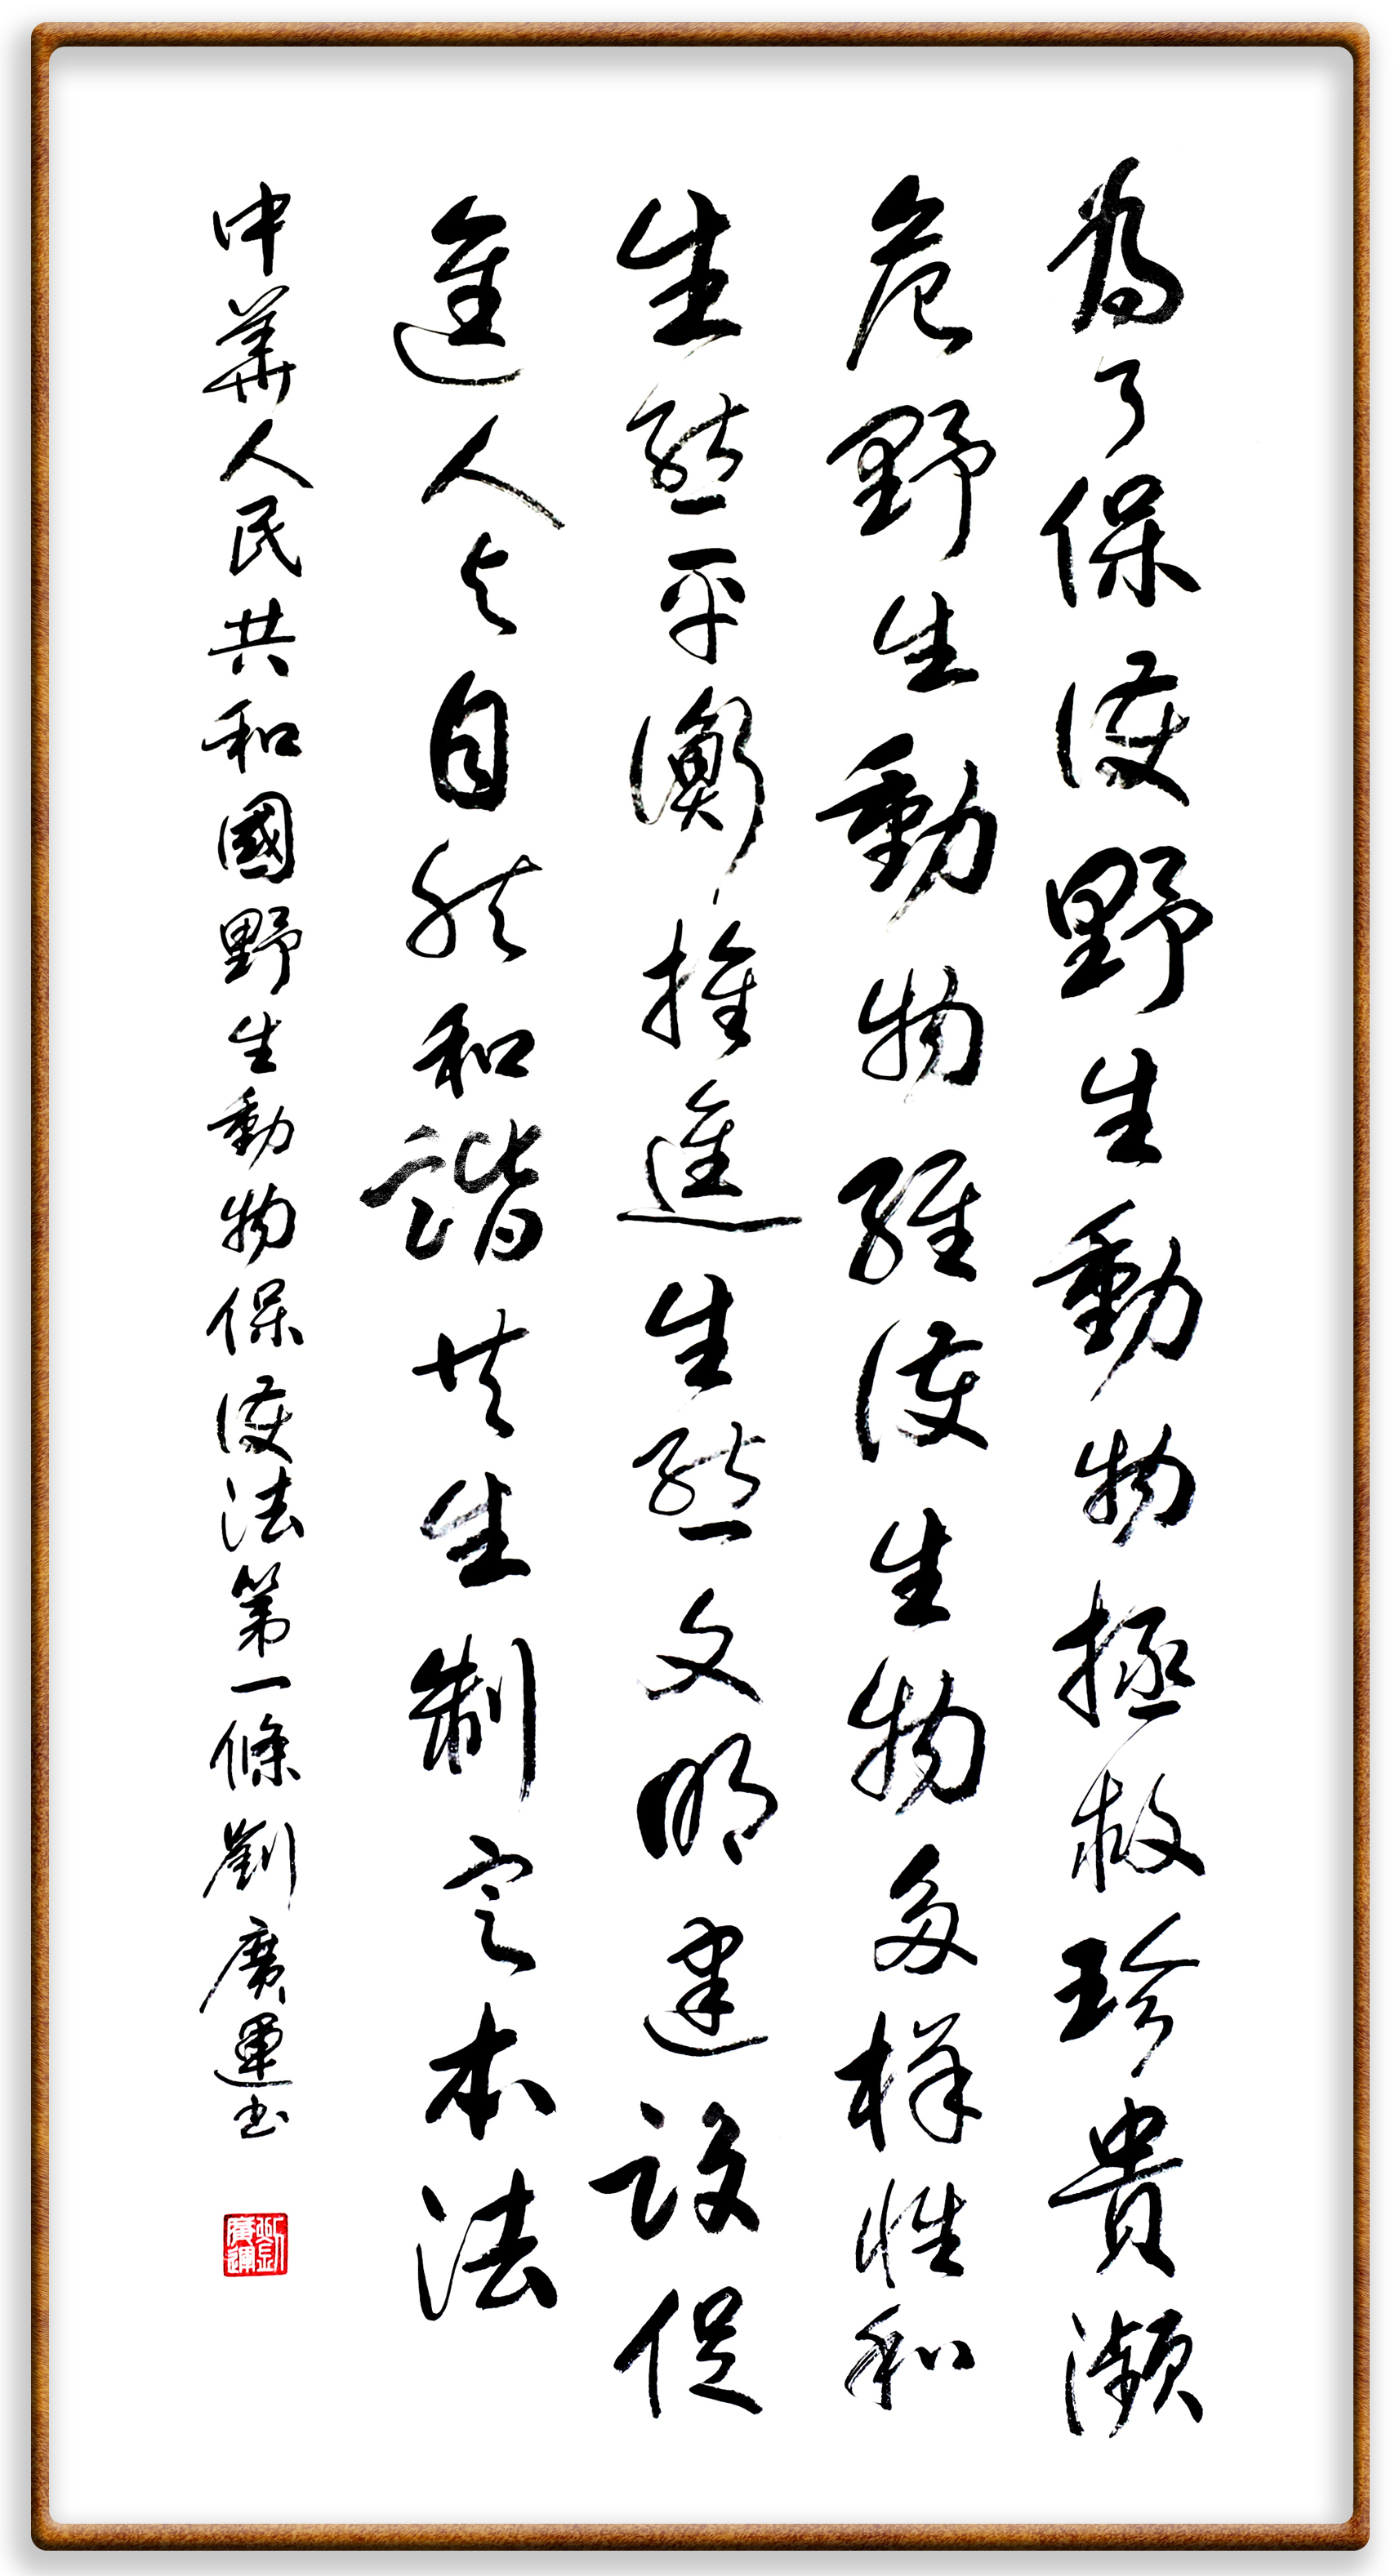 為了保護野生動物拯救珍貴瀕
危野生動物維護生物多樣性和
生態平衡推進生態文明建設促
進人与自然和諧共生制定本法
中華人民共和國野生動物保護法第一條劉廣運书
劉廣運